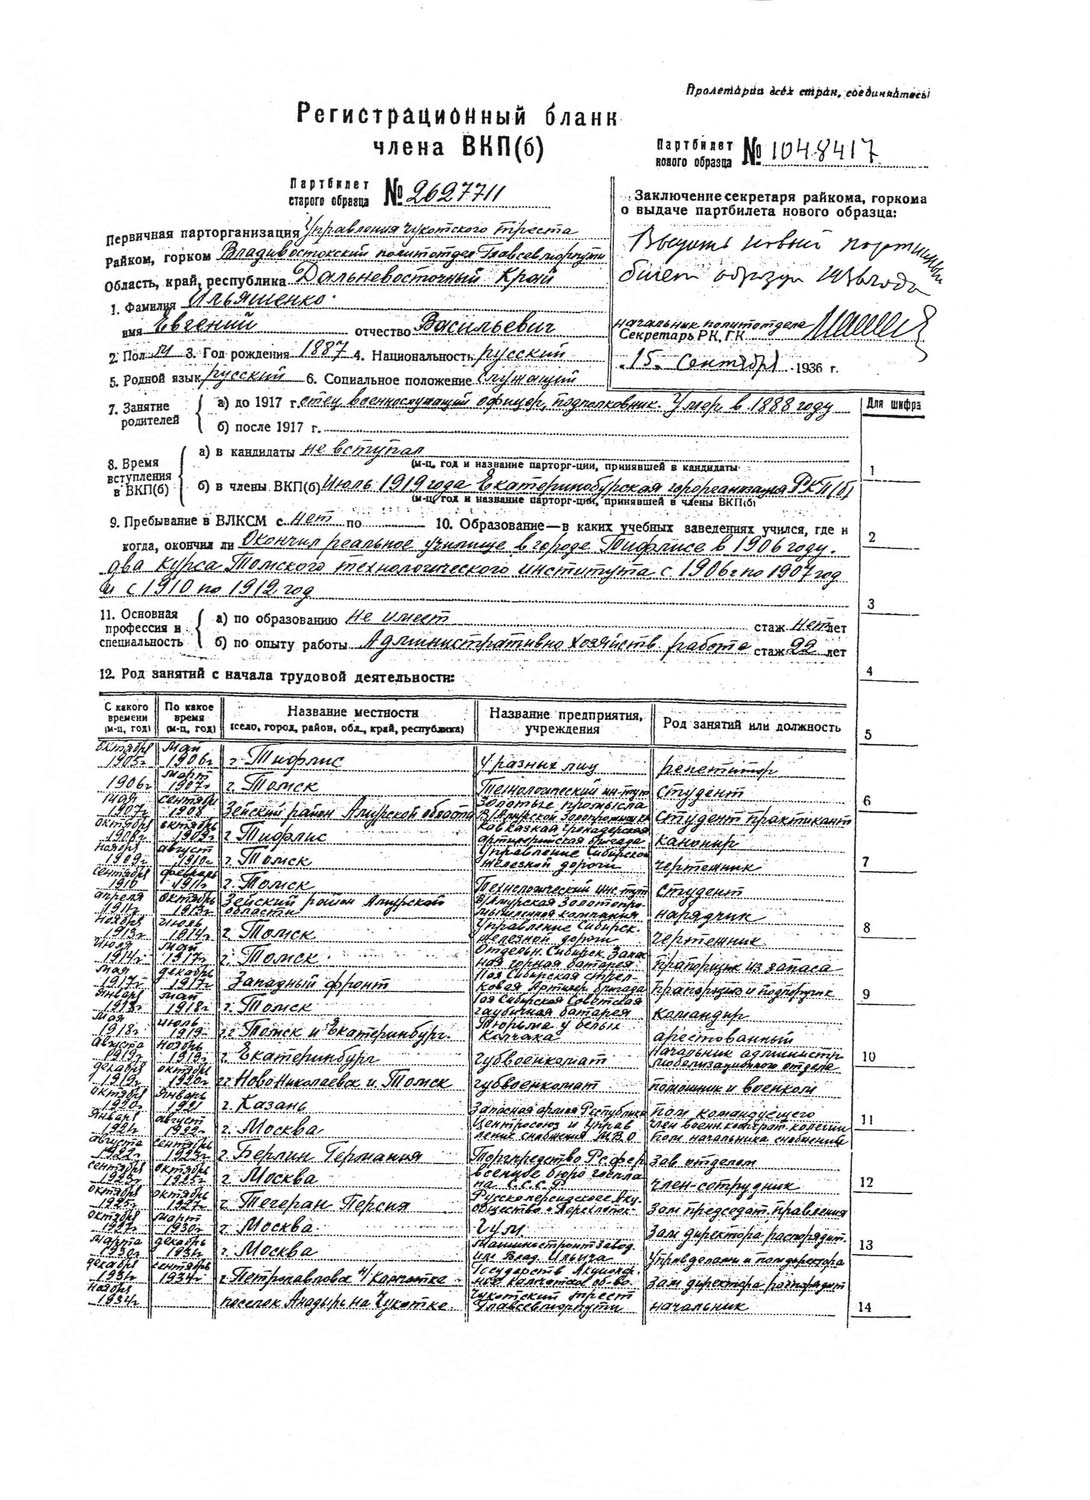 Пролетарии всех стран, соединяйтесь!
Регистрационный бланк
члена ВКП(б)
Партбилет нового образца № 1048417
Партбилет старого образца № 2627711
Заключение секретаря райкома, горкома
о выдаче партбилета нового образца:
Выдать новый партийный
билет образца 1936 года
начальник политотдела
Секретарь РК, ГК
15 Сентября 1936 г.
Первичная парторганизация Управления Чукотского треста
Райком, горком Владивостокский политотдел Главсевморпути
Область, край, республика Дальневосточный Край
1. Фамилия Ильяшенко
имя Евгений отчество Васильевич
2. Пол м 3. Год рождения 1887 4. Национальность русский
5. Родной язык русский 6. Социальное положение служащий
7. Занятие родителей
а) до 1917 г. отец военнослужащий офицер, подполковник. Умер в 1888 году
б) после 1917 г.
Для шифра
8. Время вступления в ВКП(б)
а) в кандидаты не вступал
(м-ц, год и название парторг-ции, принявшей в кандидаты)
б) в члены ВКП(б) Июль 1919 года Екатеринбургская горорганизация РКП(б)
(м-ц, год и название парторг-ции, принявшей в члены ВКП(б)
9. Пребывание в ВЛКСМ с нет по 10. Образование—в каких учебных заведениях учился, где и
когда, окончил ли Окончил реальное училище в городе Тифлисе в 1906 году.
два курса Томского технологического института с 1906 г по 1907 год
и с 1910 по 1912 год
11. Основная профессия и специальность
а) по образованию Не имеет стаж нет лет
б) по опыту работы Административно хозяйств. работа стаж 22 лет
12. Род занятий с начала трудовой деятельности:
С какого времени (м-ц, год) По какое время (м-ц, год) Название местности (село, город, район, обл., край, республика) Название предприятия, учреждения Род занятий или должность
октябрь 1905г май 1906г г. Тифлис у разных лиц репетитор
1906г март 1907г г. Томск Технологический ин-тут студент
мая 1907г сентября 1908 Зейский район Амурской области Золотые промысла студент практикант
октябрь 1908г октябрь 1909г г. Тифлис Кавказкая Гренадерская артиллерийская бригада канонир
ноября 1909г август 1910г г. Томск Управление Сибирской железной дороги чертежник
сентября 1910 февраль 1911г г. Томск Технологический ин-тут студент
апреля 1911г октябрь 1913г Зейский район Амурской области В/Амурская Золотопромышленная кампания нарядчик
ноября 1913г июль 1914г г. Томск Управление Сибирск. железной дороги чертежник
июля 1914г май 1917г г. Томск Отдельн. Сибирск. Запасная горная батарея прапорщик из запаса
мая 1917г декабрь 1917г Западный фронт Сибирская стрелковая Артилер. бригада прапорщик и подпоручик
январь май 1918г г. Томск Сибирская Советская гаубичная батарея командир
мая 1918г июль 1919г гг Томск и Екатеринбург. Тюрьме у белых Колчака арестованный
августа 1919г ноябрь 1919г г. Екатеринбург губвоенкомат Начальник администр мобилизационного отдела
декабрь 1919г октябрь 1920г гг Ново-Николаевск и Томск губвоенкомат помощник и военком
октябрь 1920г январь 1921 г. Казань Запасная армия Республики пом командующего
январь 1921г август 1922г г. Москва Центросоюз и Управление снабжения МВО член военн. кооперат. колегии пом. начальника снабжения
августа 1922г сентябрь г. Берлин Германия Торгпредство зав отделом
сентябрь октябрь 1925г г. Москва бюро госплана С.С.С.Р член-сотрудник
октябрь 1925г октябрь 1927г г. Тегеран Персия Русскоперсидское Акц. общество зам председат. правления
октябрь 1927г март 1930г г. Москва ГУМ зам директора распорядит.
марта 1930г декабрь 1931г г. Москва Машиностроит завод им Влад. Ильича Управделами и помдиректора
декабрь 1931г сентябрь 1934г г. Петропавловск н/Камчатке Государств Акционерное Камчатское об-во зам директора распорядит
ноября 1934г поселок Анадырь на Чукотке Чукотский трест Главсевморпути начальник
1
2
3
4
5
6
7
8
9
10
11
12
13
14